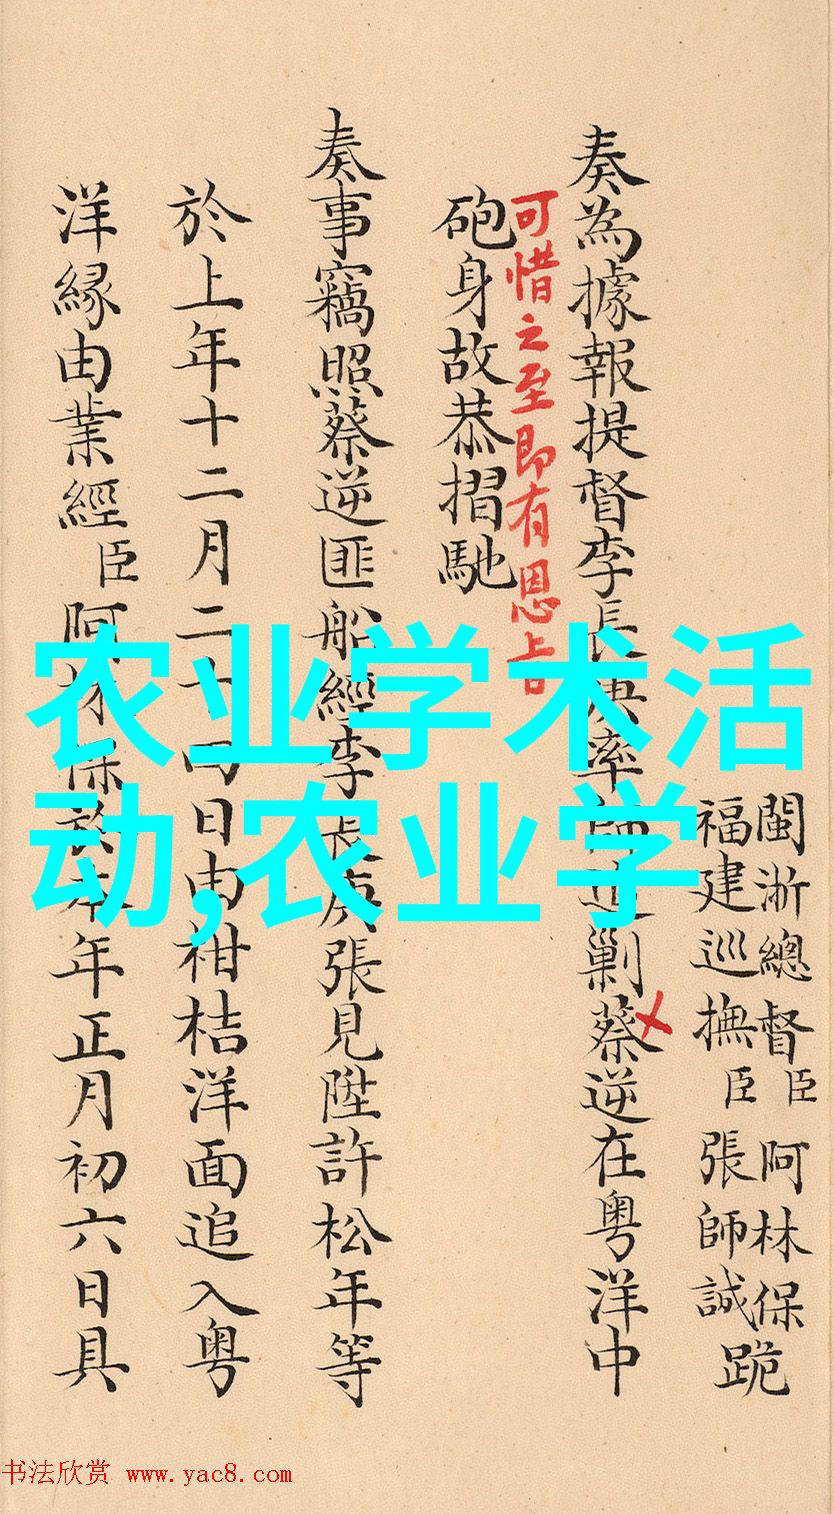 閩浙總督臣阿林保
福建巡撫臣張師誠跪
奏為據報提督李長庚率師追剿蔡逆在粤洋中
可惜之至即有恩旨
砲身故恭摺馳
奏事竊照蔡逆匪船經李長庚張見陞許松年等
於上年十二月二十四日由柑桔洋面追入粤
洋緣由業經臣阿林保於本年正月初六日具
农业学术活
动,农业学
书法欣赏 www.yac8.com